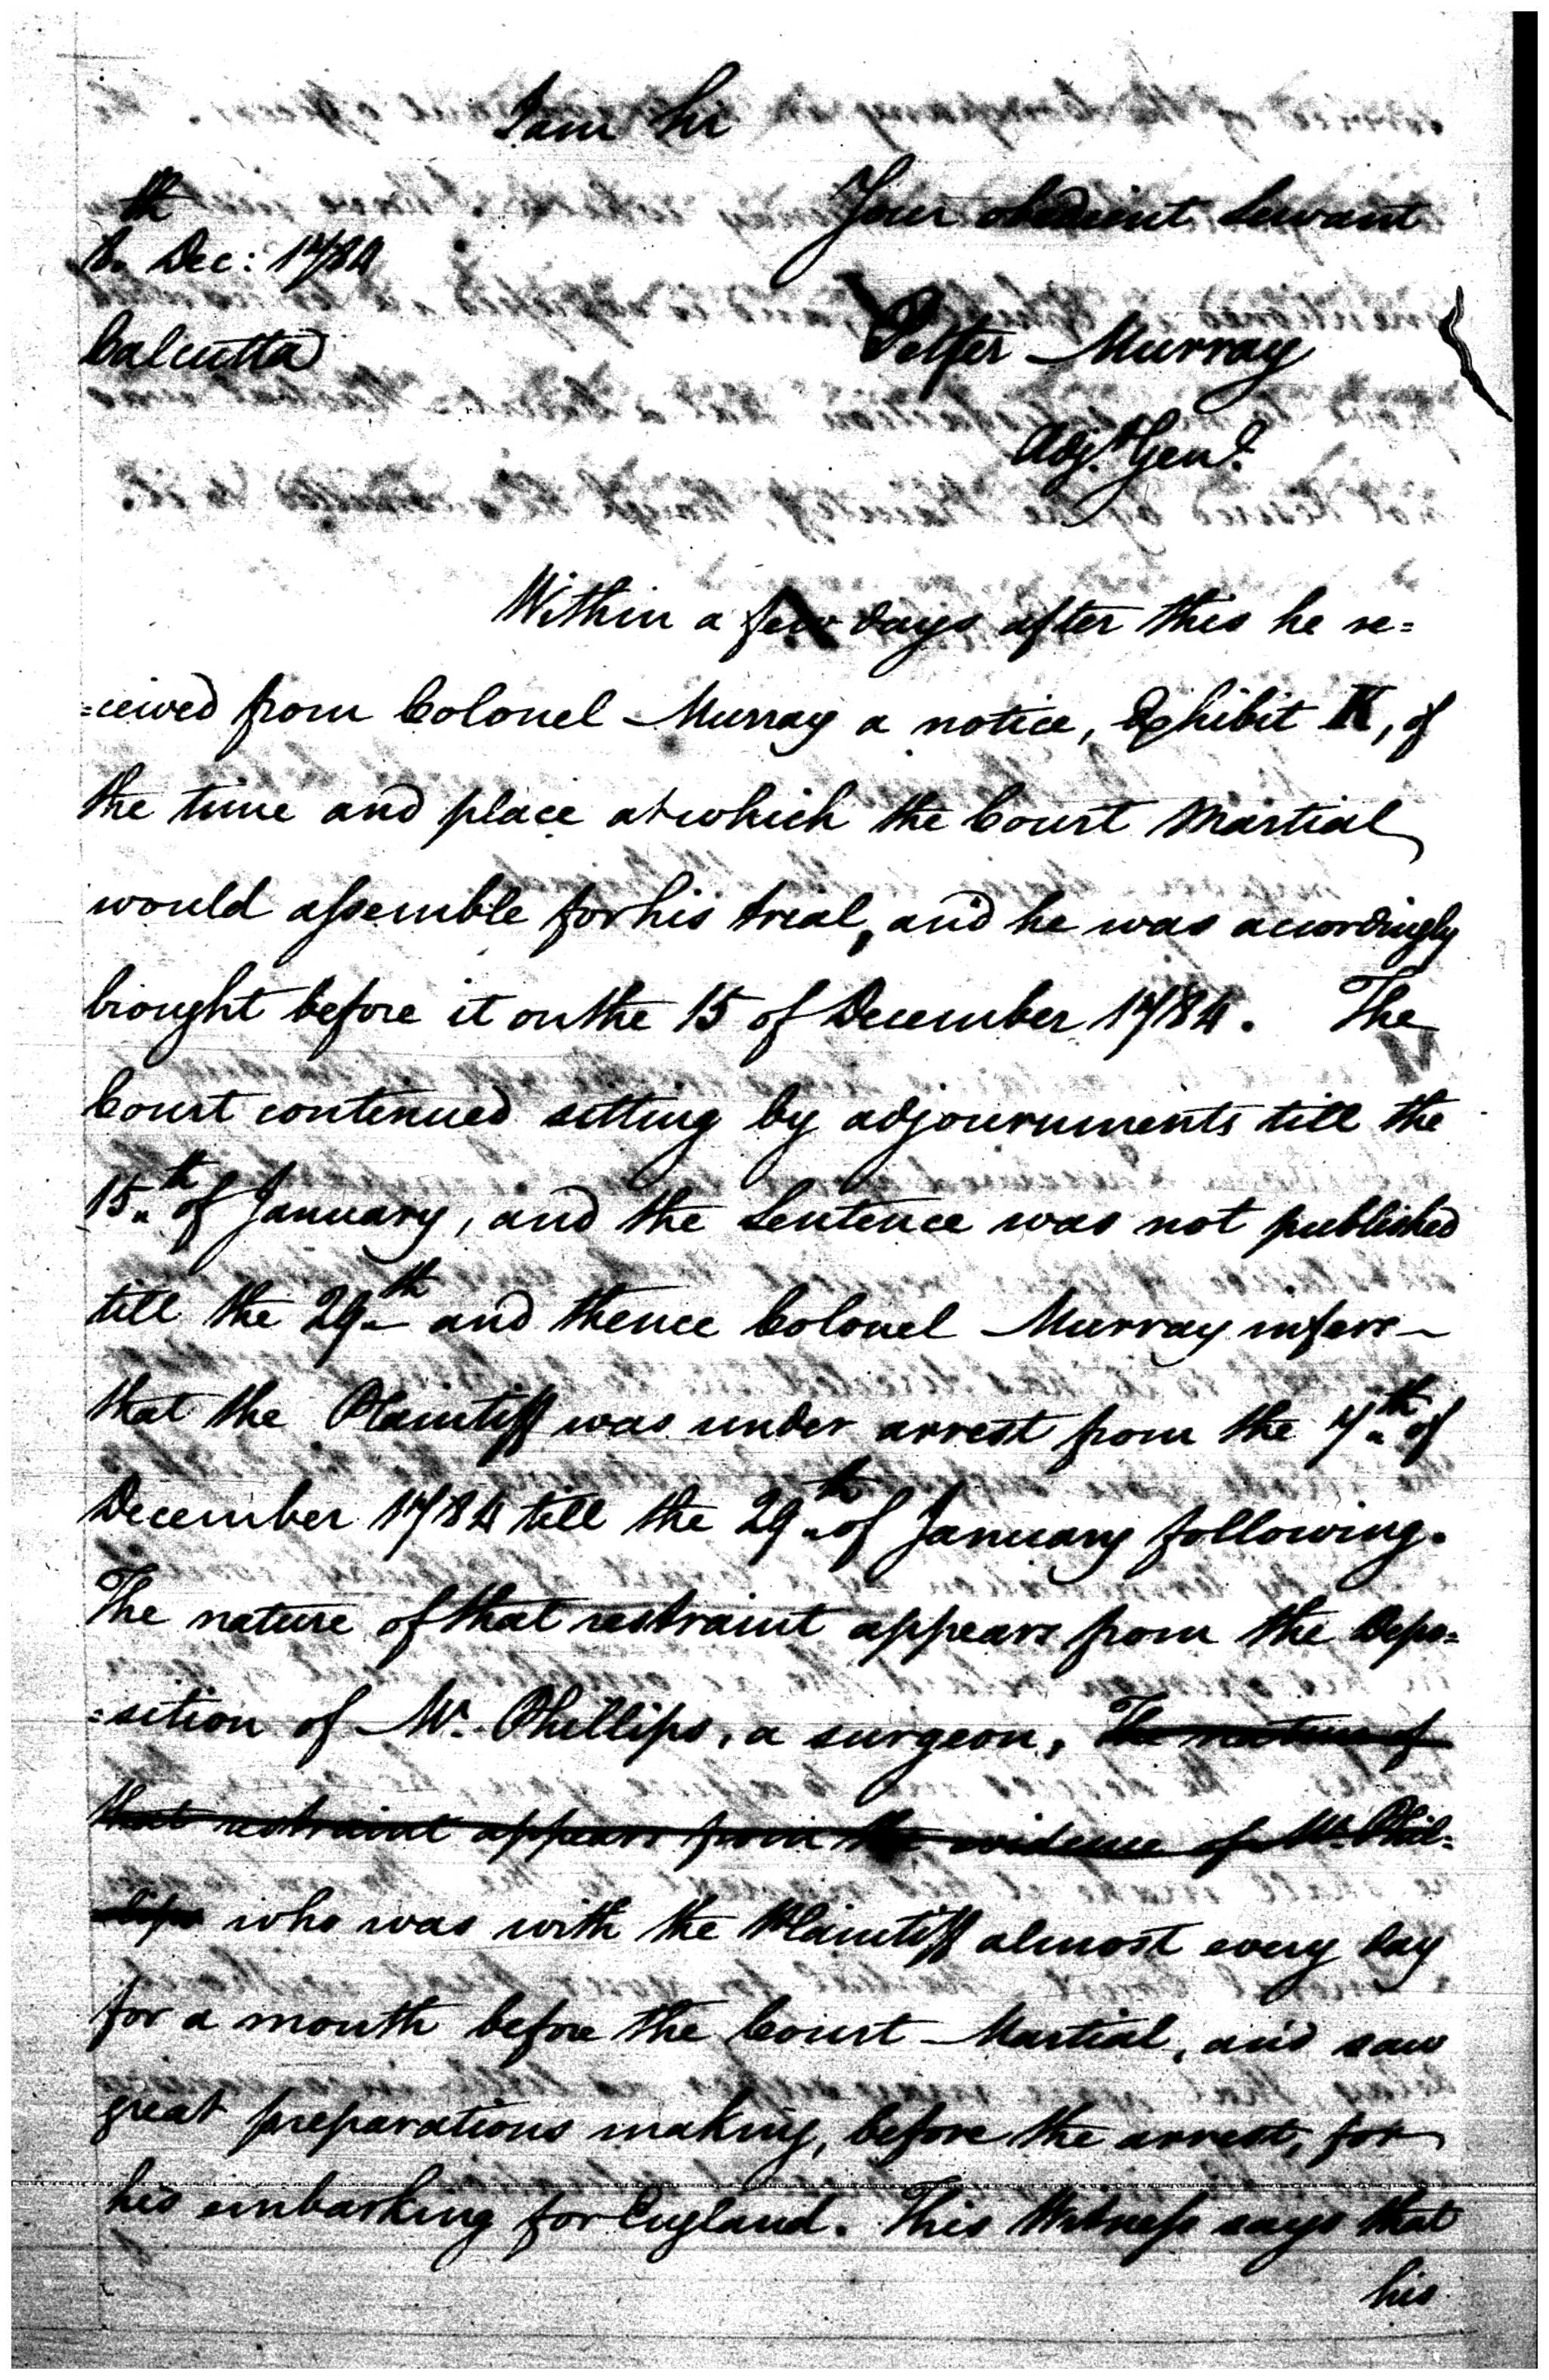 I am Sir
Your obedient Servant
8th Dec: 1784
Calcutta
Peter Murray
Adj.t Gen.l
Within a few days after this he re=
=ceived from Colonel Murray a notice, Exhibit K, of
the time and place at which the Court Martial
would assemble for his trial, and he was accordingly
brought before it on the 15 of December 1784. The
Court continued sitting by adjournments till the
15th of January, and the Sentence was not published
till the 29th and thence Colonel Murray infers
that the Plaintiff was under arrest from the 7th of
December 1784 till the 29th of January following.
The nature of that restraint appears from the Depo=
=sition of Mr. Phillips, a surgeon, The nature of
that restraint appears from the evidence of Mr. Phil=
=lips who was with the Plaintiff almost every day
for a month before the Court Martial, and saw
great preparations making, before the arrest, for
his embarking for England. This Witness says that
his